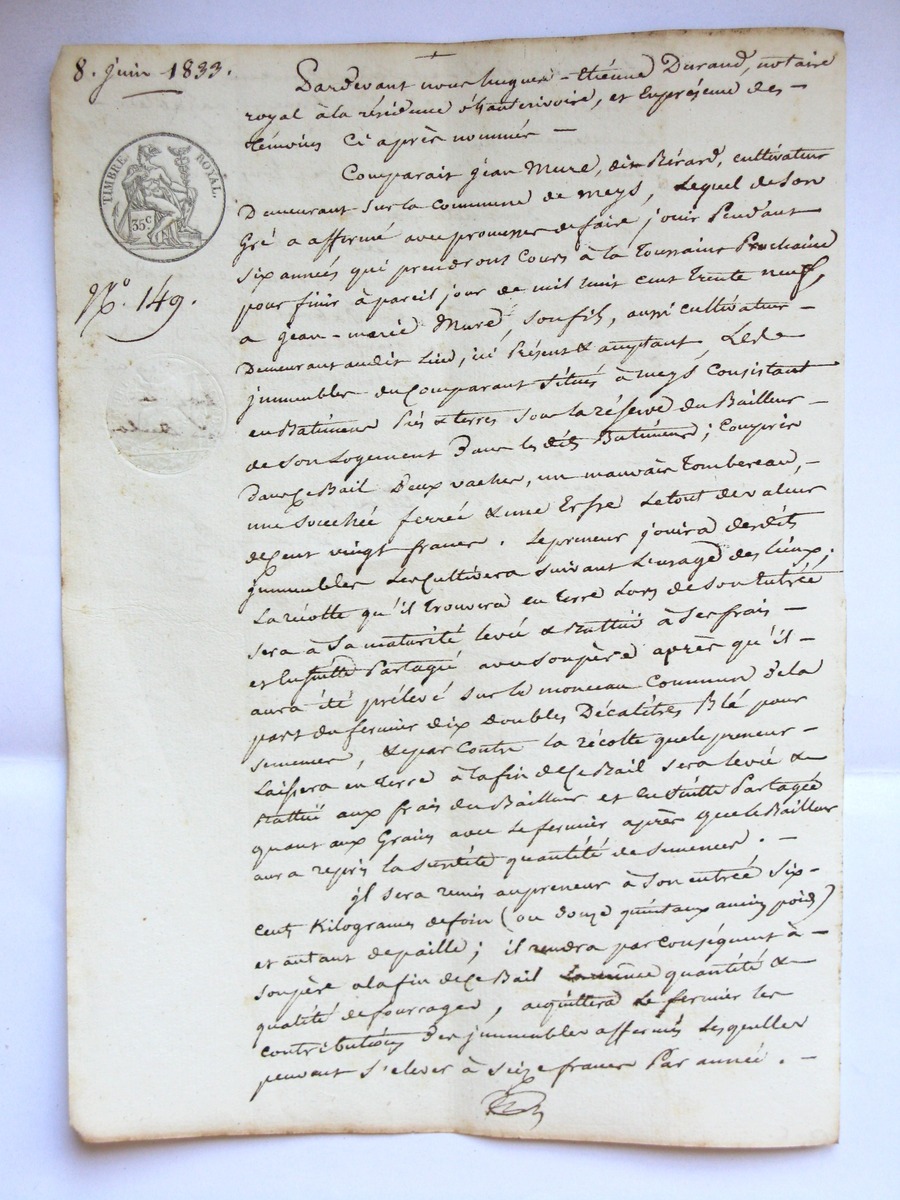 8. Juin 1833.
Pardevant nous hugues-étienne Durand, notaire
royal à la résidence d'hauterivoire, et En présence des
témoins Ci après nommés
Comparait jean Mure, dit Bérard, cultivateur
Demeurant sur la commune de meys, Lequel de son
Gré a affermé avec promesse de faire jouir Pendant
six années qui prendront Cours à la toussaint Prochaine
pour finir à pareil jour de mil huit cent trente neuf,
a jean-marie Mure, son fils, aussi cultivateur
Demeurant audit Lieu, ici Présent & acceptant, Les
jmmeubles du Comparant Situés à meys Consistant
en Batimens Prés & terres sous la réserve du Bailleur
de son Logement Dans les dits Batimens ; Compris
Dans Ce Bail Deux vaches, un mauvais tombereau,
une ferrée & une Le tout de valeur
de Cent vingt francs. Le preneur jouira desdits
jmmeubles Les Cultivera suivant L'usage des Lieux ;
La récolte qu'il trouvera en terre Lors de son Entrée
sera à Sa maturité levée & Battue à Ses frais
et Ensuitte Partagée avec son père après qu'il
aura été prélevé sur le monceau Commun De la
part du fermier dix doubles Décalitres Blé pour
semences, & par Contre la récolte que le preneur
Laissera en terre à la fin de Ce Bail sera levée &
Battue aux frais du Bailleur et Ensuitte Partagée
quant aux Grains avec Le fermier après que le Bailleur
aura repris la quantité de semences.
jl sera remis au preneur à Son entrée Six
cents Kilogrames de foin (ou douze quintaux ancien poids)
et autant de paille ; il rendra par Conséquent à
son père a la fin de Ce Bail La même quantité &
qualité de fourrages, acquittera Le fermier les
contributions Des jmmeubles affermés Lesquelles
peuvent s'élever à Seize francs Par année.
TIMBRE ROYAL.
35C
No. 149.